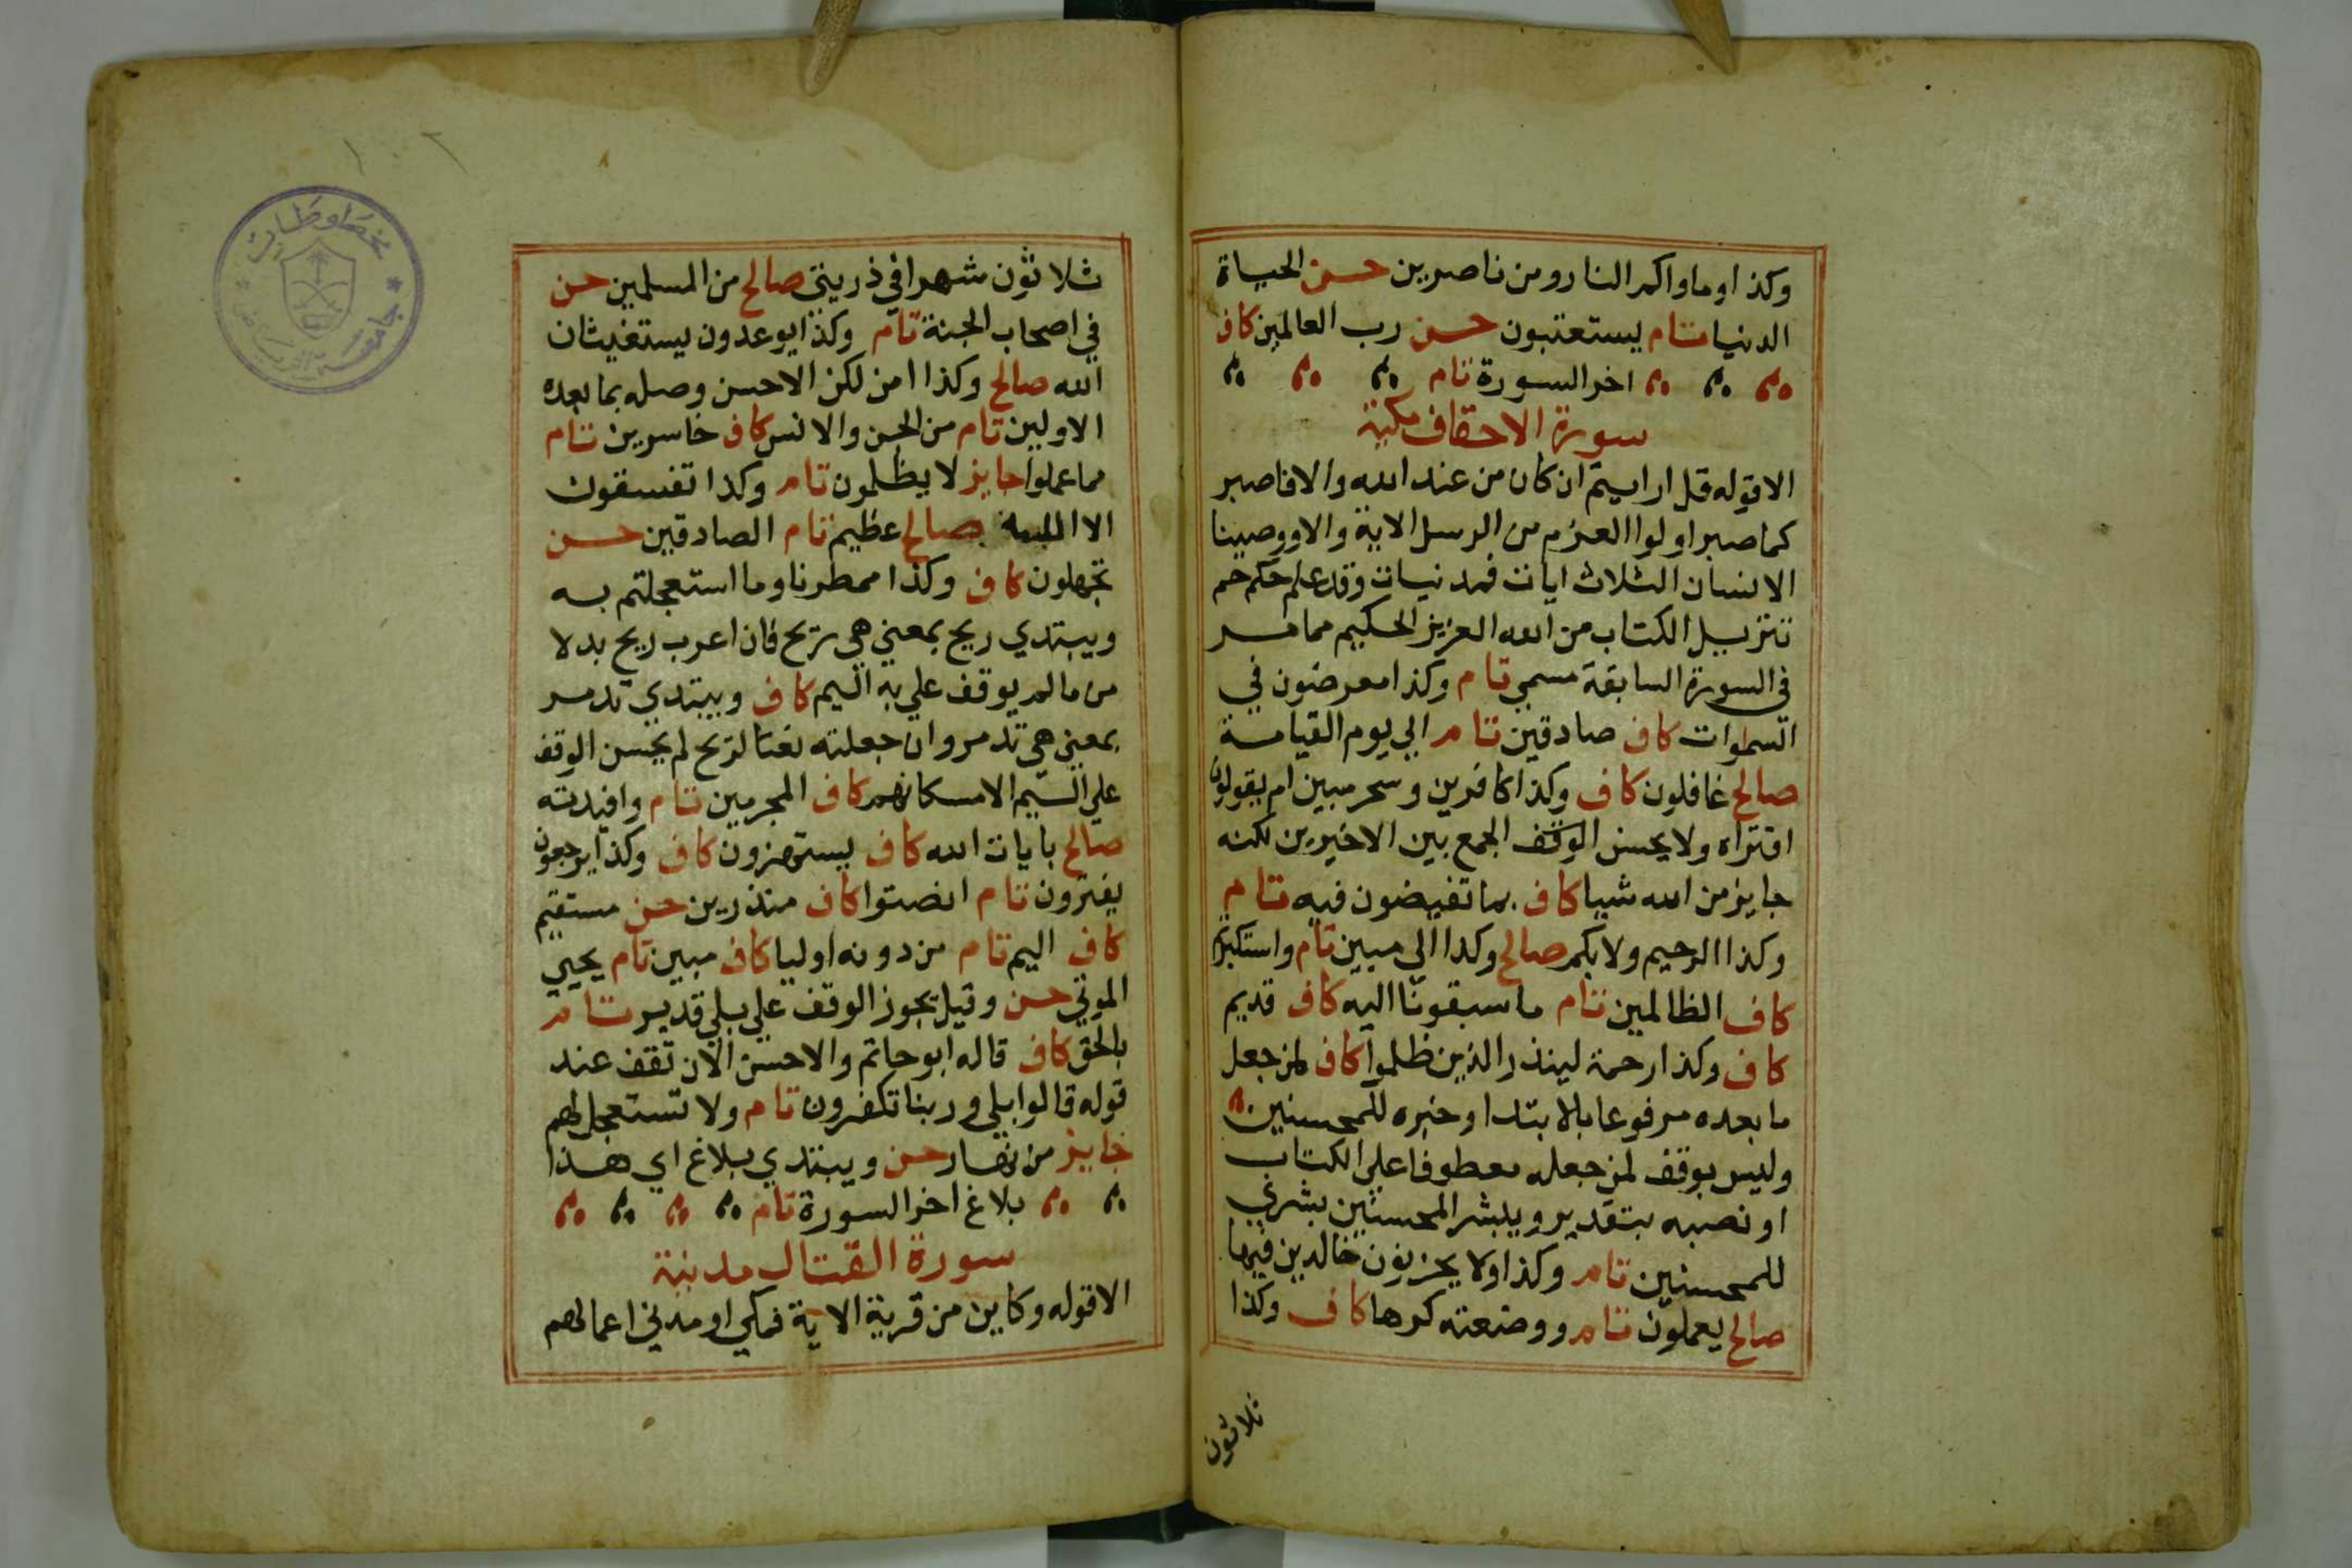 وكذا وماواكم النار ومن ناصرين حسن الحياة
الدنيا تام يستعتبون حسن رب العالمين كاف
اخر السورة تام
سورة الاحقاف مكية
الا قوله قل ارايتم ان كان من عند الله والا فاصبر
كما صبر اولوا العزم من الرسل الاية والا ووصينا
الانسان الثلاث ايات فمدنيات وقد علم حكم حم
تنزيل الكتاب من الله العزيز الحكيم مما مر
في السورة السابقة مسمى تام وكذا معرضون في
السموات كاف صادقين تام الي يوم القيامة
صالح غافلون كاف وكذا كافرين وسحر مبين ام يقولون
افتراه ولا يحسن الوقف الجمع بين الاخيرين لكنه
جايز من الله شيا كاف بما تفيضون فيه تام
وكذا الرحيم ولا بكم صالح وكذا الي مبين تام واستكبرتم
كاف الظالمين تام ما سبقونا اليه كاف قديم
كاف وكذا رحمة لينذر الذين ظلموا كاف لمن جعل
ما بعده مرفوعا بالابتدا وخبره للمحسنين
وليس بوقف لمن جعله معطوفا علي الكتاب
او نصبه بتقدير ويبشر المحسنين بشري
للمحسنين تام وكذا ولا يحزنون خالدين فيها
صالح يعملون تام ووضعته كرها كاف وكذا
ثلاثون
ثلاثون شهرا في ذريتي صالح من المسلمين حسن
في اصحاب الجنة تام وكذا يوعدون يستغيثان
الله صالح وكذا امن لكن الاحسن وصله بما بعده
الاولين تام من الجن والانس كاف خاسرين تام
مما عملوا جايز لا يظلمون تام وكذا تفسقون
الا الله صالح عظيم تام الصادقين حسن
تجهلون كاف وكذا ممطرنا وما استعجلتم به
ويبتدي ريح بمعني هي ريح فان اعرب ريح بدلا
من ما لم يوقف علي به اليم كاف ويبتدي تدمر
بمعني هي تدمر وان جعلته نعتا لريح لم يحسن الوقف
علي اليم الا مسكانهم كاف المجرمين تام وافيدته
صالح بايات الله كاف يستهزون كاف وكذا يرجعون
يفترون تام انصتوا كاف منذرين حسن مستقيم
كاف اليم تام من دونه اوليا كاف مبين تام يحيي
الموتي حسن وقيل يجوز الوقف علي بلي قدير تام
بالحق كاف قاله ابو حاتم والاحسن الان تقف عند
قوله قالوا بلي وربنا تكفرون تام ولا تستعجل لهم
جايز من نهار حسن ويبتدي بلاغ اي هذا
بلاغ اخر السورة تام
سورة القتال مدنية
الا قوله وكاين من قرية الاية فمكي او مدني اعمالهم
مخطوطات
جامعة الرياض